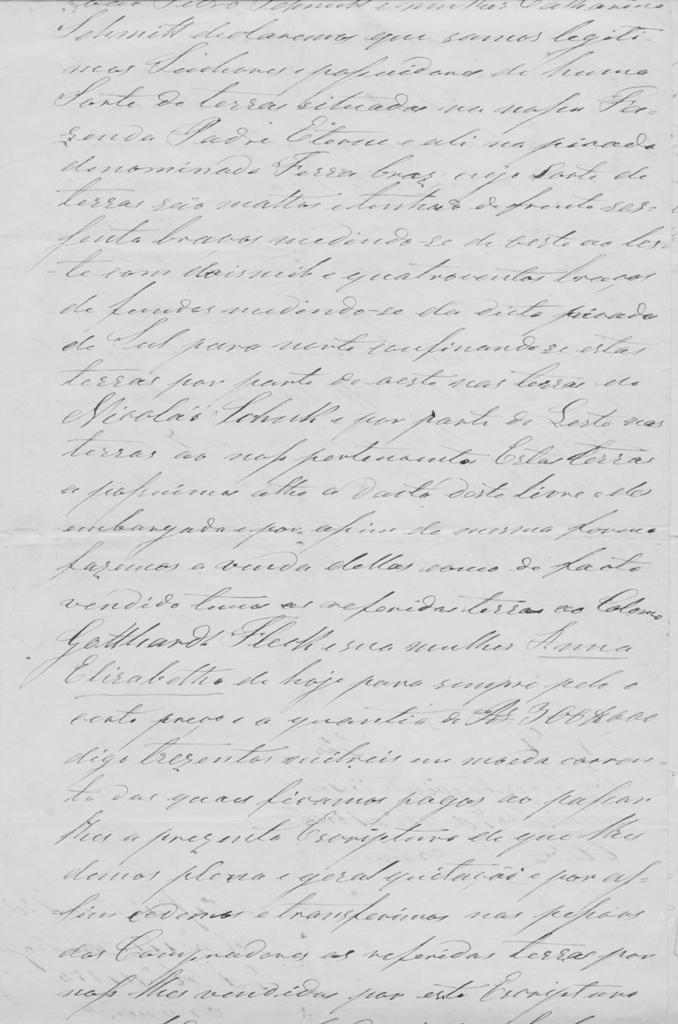 João Pedro Schmitt e mulher Catharina
Schmitt declaramos que somos legiti-
mos Senhores e possuidores de huma
Sorte de terras situadas na nossa Fa-
zenda Padre Eterno e ali na picada
denominada Ferra braz, cujo sorte de
terras são mattos e tenhão de frente ses-
senta bracas medindo-se de oeste ao les-
te com dois mil e quatrocentos braças
de fundos medindo-se da dicta picada
do Sul para norte confinando-se estas
terras por parte do oeste nas terras de
Nicoláo Schuk e por parte de Leste nas
terras ao noss pertencentes Estas terras
a possuimos athe a dacta deste livre e des
embargada e por assim de mesma forma
fazemos a venda dellas como de facto
vendido temos as referidas terras ao Colono
Gotthardt Fleck e sua mulher Anna
Elizabetha de hoje para sempre pelo o
certo preço e a quantia de Rs 300$000
digo trezentos milreis em moeda corren-
te das quaes ficamos pagos ao passar
lhes a prezente Escriptura de que lhes
damos plena e geral quitação e por as-
sim cedemos e transferimos nas pessoas
dos Compradores as referidas terras por
noss lhes vendidas por esta Escriptura